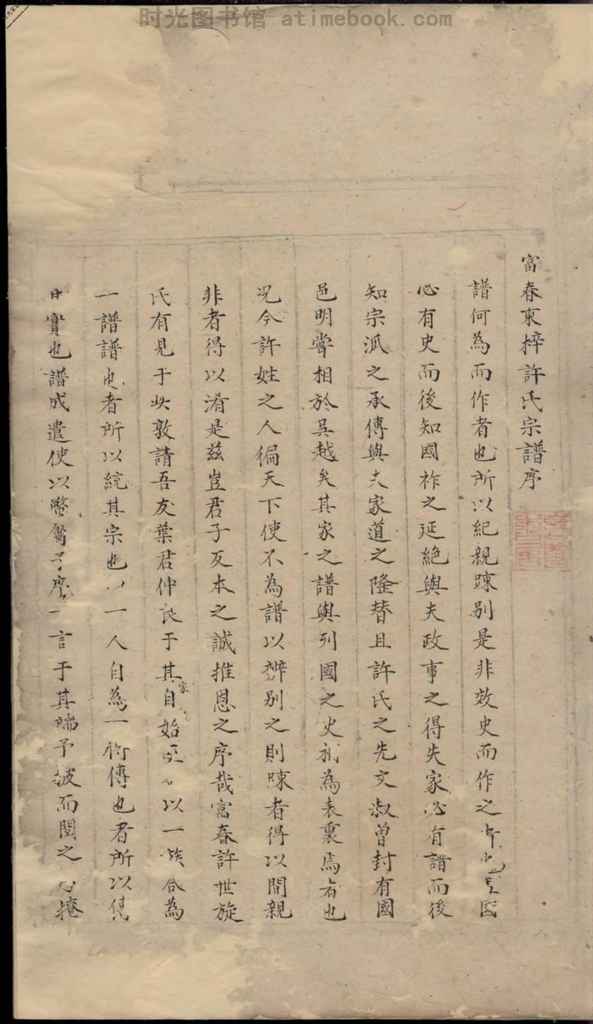 时光图书馆 atimebook.com
富春東梓許氏宗譜序
譜何為而作者也所以紀親踈别是非效史而作之國
必有史而後知國祚之延絕與夫政事之得失家必有譜而後
知宗派之承傳與夫家道之隆替且許氏之先文叔曽封有國
邑明甞相於吳越矣其家之譜與列國之史為表裏焉者也
况今許姓之人徧天下使不為譜以辨别之則踈者得以間親
非者得以淆是兹豈君子反本之誠推恩之序哉富春許世旋
氏有見于此敦請吾友葉君仲良于其自始以一族合為
一譜譜也者所以統其宗也以一人自為一傳也者所以
實也譜成遣使以幣言于其端予披而閱之